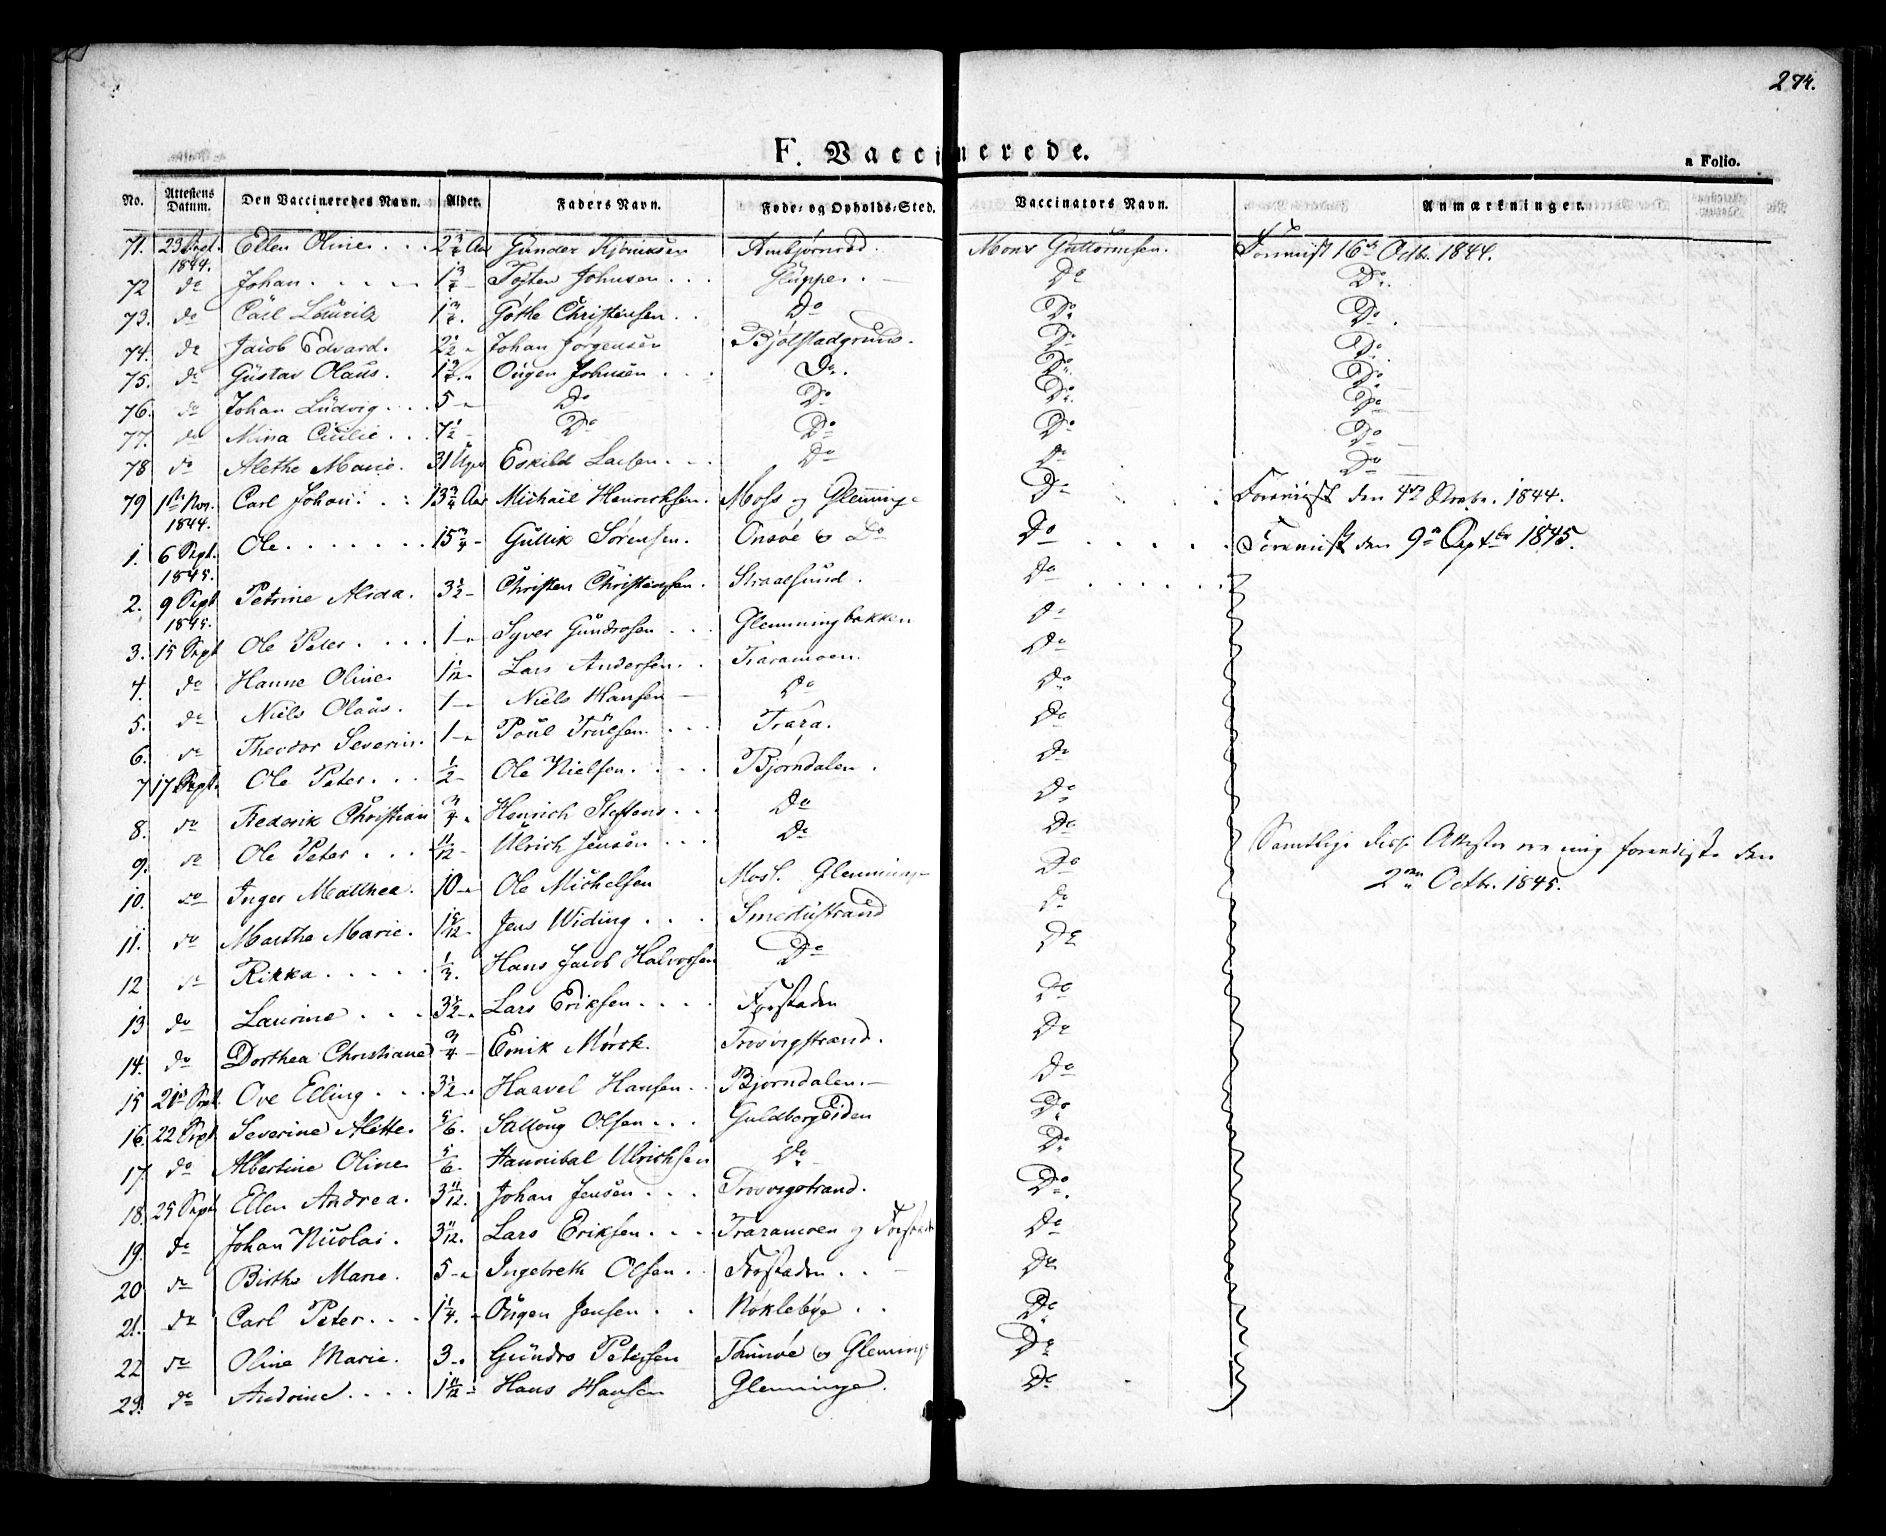 274.
F. Vaccinerede.
a Folio.
No. Attestens Datum. Den Vaccineredes Navn. Alder. Faders Navn. Føde- og Opholds-Sted. Vaccinators Navn. Anmærkninger.
71. 23 Sept. 1844. Ellen Oline Aar Gunder Ambjørnrød. Mons Guttormsen. Foreviist 16de Octbr. 1844.
72 do Johan Johnsen Gluppe. Do Do
73. do Carl Do Do Do
74. do Jacob Edvard. Johan Jørgensen Bjølstadgrund. Do Do
75. do Gustav Olaus. Johnsen Do. Do Do
76. do Johan Ludvig 5 Do Do Do Do
77. do Mina 7 1/2 Do Do Do Do
78 do Alethe Marie. 31 Uger Eskild Larsen Do Do Do
79 1ste Nov. 1844. Carl Johan 13 3/4 Aar Michael Henrichsen. Moss og Glemminge Do Foreviist den 1844.
1. 6 Sept. 1845. Ole 15 3/4 Gullik Sørensen. Onsøe og Do Do Foreviist den 9de Septbr 1845.
2. 9 Sept 1845. Petrine Alida. 3 1/2 Christen Christensen. Straalsund. Do
3. 15 Sept Ole Peter 1 Syver Gundersen Glemmingbakken Do
4. do Hanne Oline 1 1/12 Lars Andersen Traramoen. Do
5. do Niels Olaus. 1 Niels Hansen Do Do
6. do Theodor Severin. 1 Poul Truelsen Trara. Do
7 17 Sept. Ole Peter 1/2 Ole Nielsen Bjørndalen. Do
8. do Frederik Christian 3/4 Henrich Steffens Do Do
9. do Ole Peter 11/12 Ulrich Jensen Do Do Samtlige disse Attester ere mig foreviiste den
10. do Inger Mathea. 10 Ole Michelsen Moss. Glemminge Do 2den Octbr. 1845.
11. do Marthe Marie. Jens Widing Smertustrand Do
12 do Rikka 1/3 Hans Jacob Halvorsen Do Do
13 do Laurine 3 1/2 Lars Eriksen Forstaden Do
14. do Dorthea Christiane 3/4 Enik Mørck. Trosvigstrand. Do
15 21de Sept. Ove Elling 3 1/2 Haavel Hansen Bjørndalen. Do
16. 22 Sept Severine Alette. 5/6. Olsen Guldbergeiden Do
17. do Albertine Oline 5/6. Hannibal Ulrichsen Do Do
18. 25 Sept Ellen Andrea. 3 11/12. Johan Jensen Trosvigstrand. Do
19. do Johan Nicolai. 3 11/12. Lars Eriksen Traramoen og Forstaden Do
20 do Birthe Marie. 5 Ingebreth Olsen Forstaden Do
21. do Carl Peter 1 1/4. Jensen Nøklebye Do
22 do Oline Marie. 3 Gundro Petersen Thunøe og Gleminge Do
23. do Andrine 1 11/12 Hans Hansen Glemminge. Do